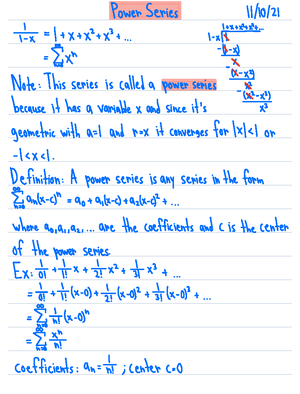 Power Series
11/10/21
1/(1-x) = 1 + x + x² + x³ + ...
= ∞Σn=0 xⁿ
1+x+x²+x³+...
1-x 1
-(1-x)
x
-(x-x²)
x²
-(x²-x³)
x³
Note: This series is called a power series
because it has a variable x and since it's
geometric with a=1 and r=x it converges for |x|<1 or
-1<x<1.
Definition: A power series is any series in the form
∞Σn=0 aₙ(x-c)ⁿ = a₀ + a₁(x-c) + a₂(x-c)² + ...
where a₀, a₁, a₂, ... are the coefficients and c is the center
of the power series.
Ex: 1/0! + 1/1! x + 1/2! x² + 1/3! x³ + ...
= 1/0! + 1/1! (x-0) + 1/2! (x-0)² + 1/3! (x-0)³ + ...
= ∞Σn=0 1/n! (x-0)ⁿ
= ∞Σn=0 xⁿ/n!
coefficients: aₙ = 1/n! ; center c=0